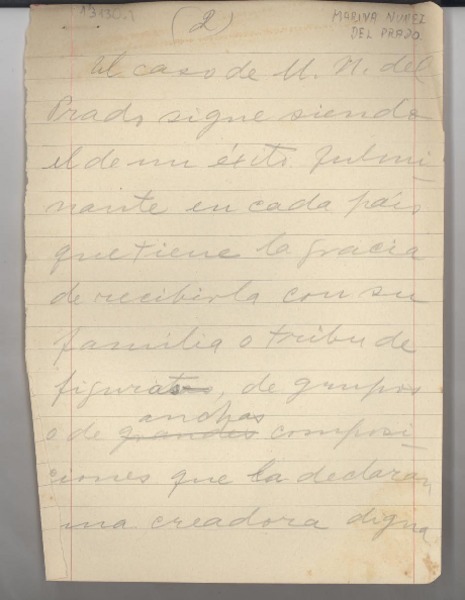 A3130.1
(2)
MARINA NUÑEZ
DEL PRADO
El caso de M. N. del
Prado sigue siendo
el de un éxito fulmi-
nante en cada país
que tiene la gracia
de recibirla con su
familia o tribu de
figuras, de grupos
anchas
o de grandes composi-
ciones que la declaran
una creadora digna